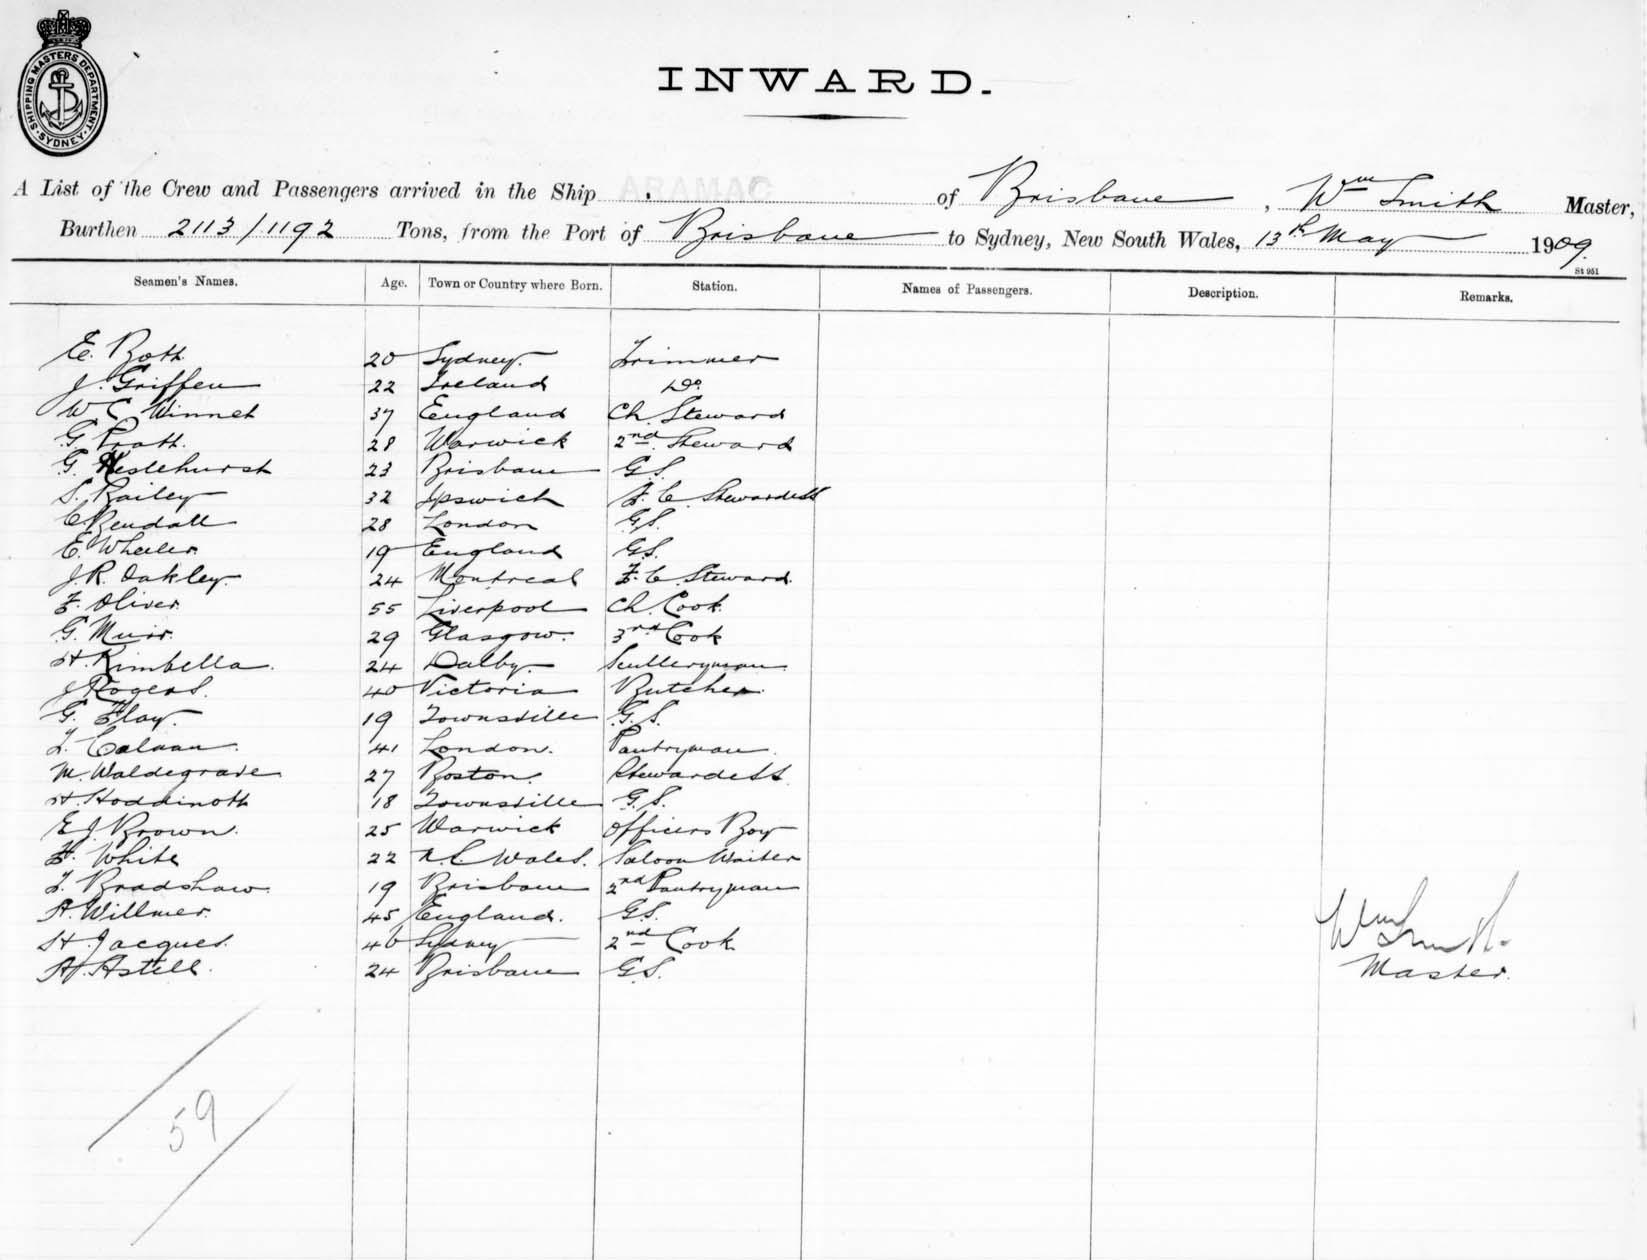 SHIPPING MASTERS DEPARTMENT
SYDNEY
INWARD.
A List of the Crew and Passengers arrived in the Ship ARAMAC of Brisbane, Wm Smith Master,
Burthen 2113/1192 Tons, from the Port of Brisbane to Sydney, New South Wales, 13th May 1909.
St 951
Seamen's Names. Age. Town or Country where Born. Station. Names of Passengers. Description. Remarks.
E. Both 20 Sydney. Trimmer
J. Griffen 22 Ireland Do.
W C Winnet 37 England Ch. Steward
G. Pratt. 28 Warwick 2nd Steward
G. Heslehurst 23 Brisbane G.S.
S. Bailey 32 Ipswich F. C. Stewardess
C. Rendall 28 London G.S.
E. Wheeler. 19 England G.S.
J.R. Oakley. 24 Montreal F. C. Steward.
F. Oliver. 55 Liverpool Ch. Cook
G. Muir. 29 Glasgow. 3rd Cook
H. Kimbella. 24 Dalby. Sculleryman.
J Rogers. 40 Victoria Butcher.
G. Flay. 19 Townsville G.S.
41 London. Pantryman.
M. Waldegrave 27 Boston. Stewardess
H. Hoddinott 18 Townsville G.S.
E J. Brown. 25 Warwick Officers Boy
F. White 22 Wales. Saloon Waiter
T. Bradshaw. 19 Brisbane 2nd Pantryman
A. Willmer. 45 England. G.S.
H. Jacques. 46 Sydney 2nd Cook
A. Astell. 24 Brisbane G.S.
Wm Smith
Master.
59